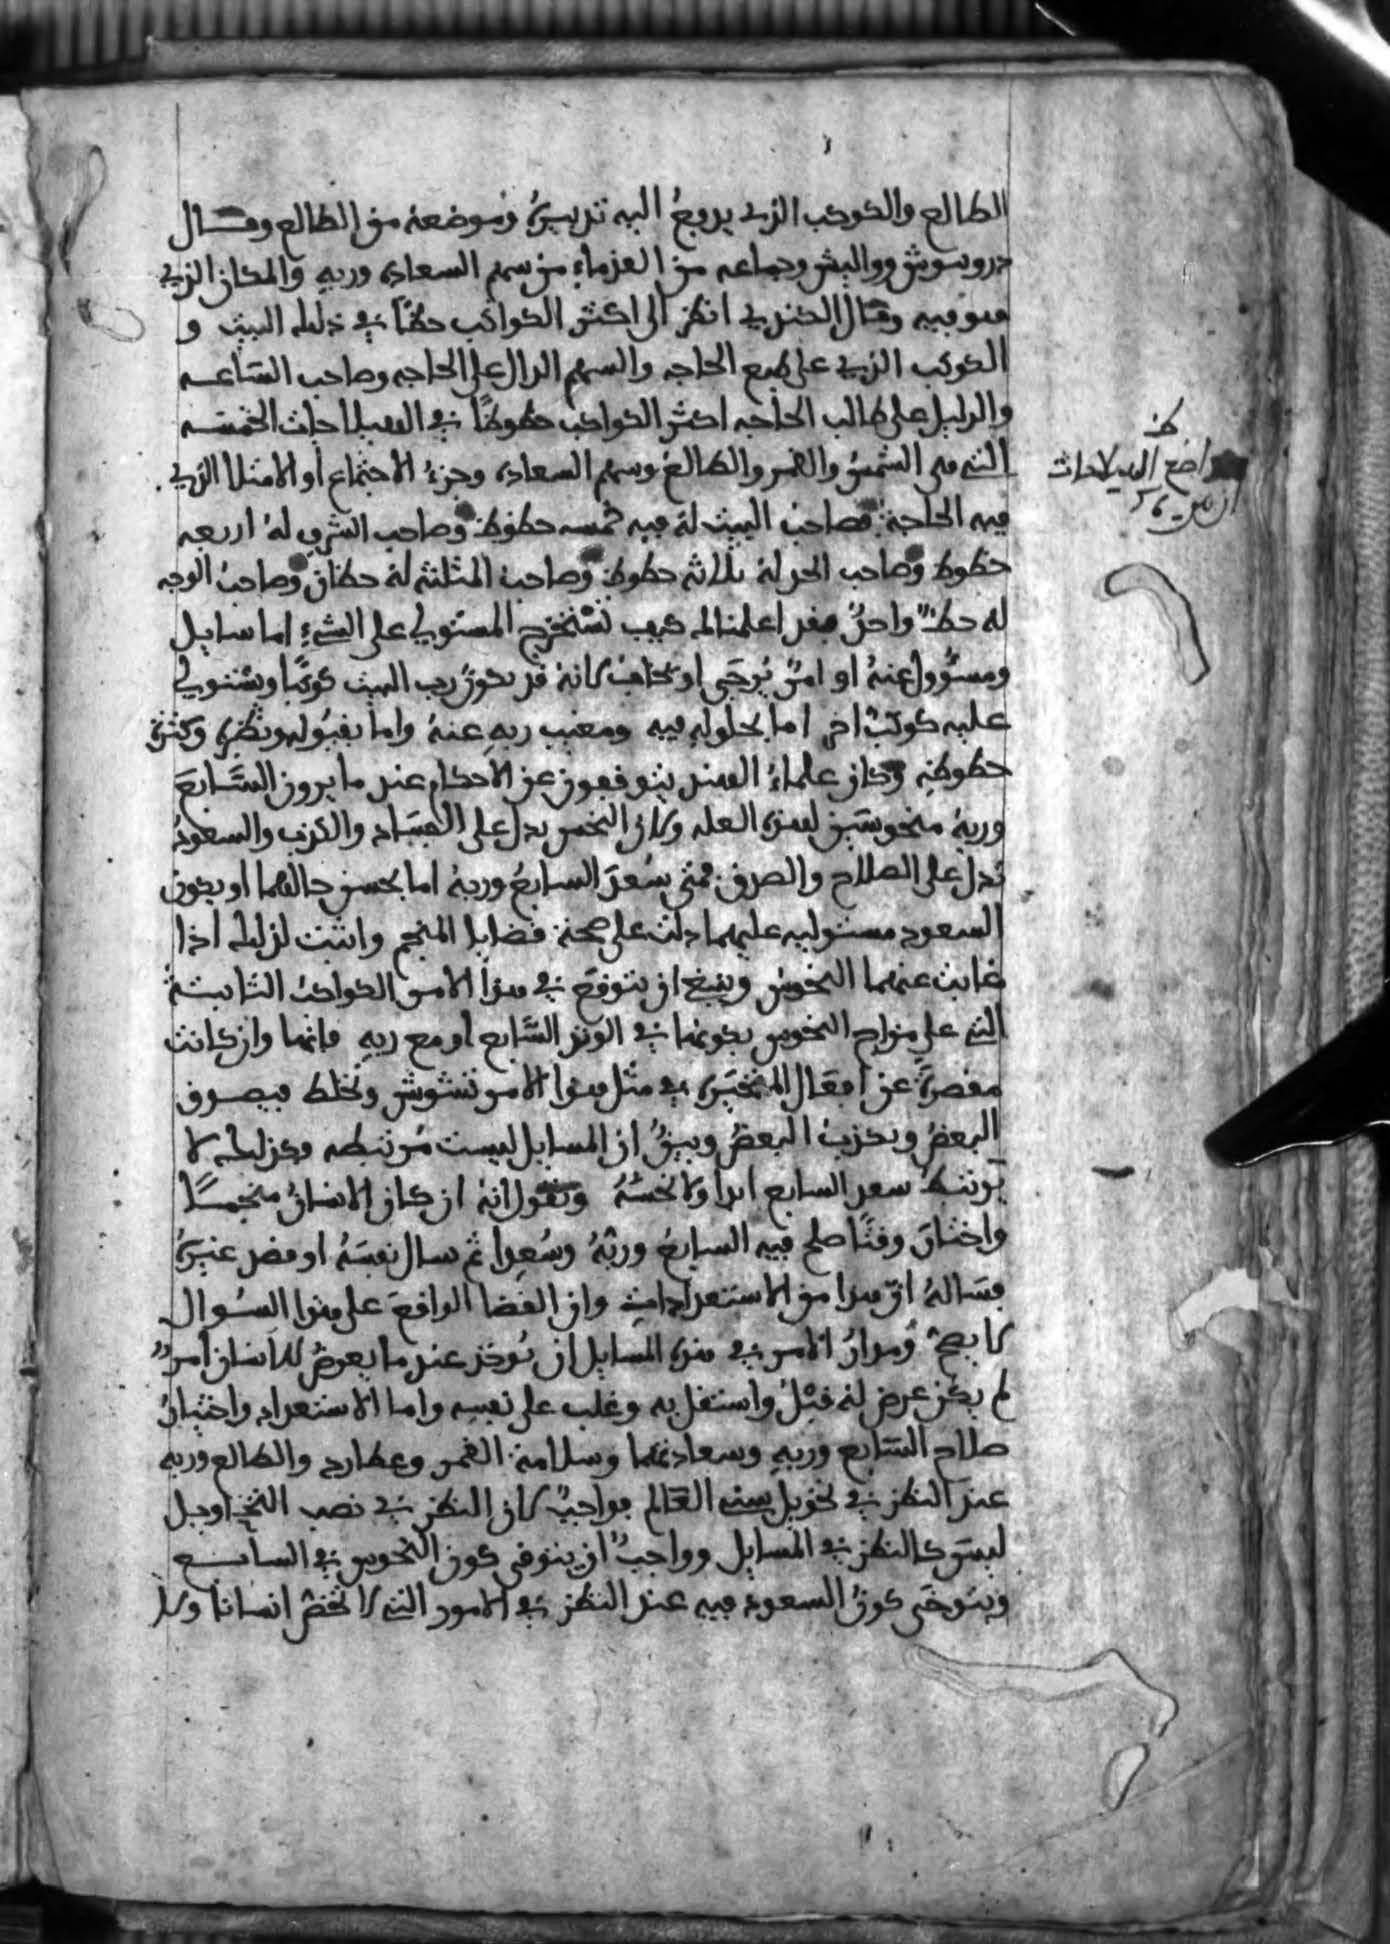 الطالع والكوكب الذي يدفع اليه تدبيره وموضعه من الطالع وقال
دروسوش وواليش وجماعه من القدماء من سهم السعاده وربه والمكان الذي
هو فيه وقال الكندي انظر الى اكثر الكواكب حظا في ذلك البيت و
الكوكب الذي على طبع الحاجه والسهم الدال على الحاجه وصاحب الساعه
والدليل على طالب الحاجه اكثر الكواكب حظوظا في الهيلاجات الخمسه
التي هي الشمس والقمر والطالع وسهم السعاده وجزء الاجتماع او الامتلا الذي
فيه الحاجة فصاحب البيت له فيه خمسه حظوظ وصاحب الشرف له اربعه
حظوظ وصاحب الحد له ثلاثه حظوظ وصاحب المثلثه له حظان وصاحب الوجه
له حظ واحد فقد اعلمنا لك كيف تستخرج المستولي على الشيء اما سايل
ومسؤول عنه او امر يرجى او يخاف لانه قد يكون رب البيت كوكبا ويستولي
عليه كوكب اخر اما بحلوله فيه ومغيب ربه عنه واما بقبوله ونظره وكثرة
حظوظه وكان علماء الهند يتوقفون عن الاحكام عند ما يرون السابع
وربه منحوسين لهذه العله ولان النحس يدل على الفساد والكذب والسعود
تدل على الصلاح والصدق فمتى سعد السابع وربه اما بحسن حالهما او يكون
السعود مستوليه عليهما دلت على صحة قضايا المنجم واثبت لذلك اذا
غابت عنهما النحوس وينبغ ان يتوقع في هذا الامر الكواكب الثابتة
التي على مزاج النحوس بكونها في الوتد السابع او مع ربه فانها وان كانت
مقصرة عن افعال المتحيره في مثل هذا الامر تشوش وتخلط فيصدق
البعض ويكذب البعض وبين ان المسايل ليست مرتبطه وكذلك لا
يرتبط سعد السابع ابدا ولا نحسه ونقول انه ان كان الانسان منجما
واختار وقتا صلح فيه السابع وربه وسعدا ثم سال نفسه او قصد غيره
فساله ان هذا من الاستعدادات وان القضا الواقع على هذا السؤال
لا يصح ومدار الامر في هذه المسايل ان تؤخذ عند ما يعرض للانسان امر
لم يكن عرض له قبل واشتغل به وغلب على نفسه واما الاستعداد واختيار
صلاح السابع وربه وسعادتهما وسلامة القمر وعطارد والطالع وربه
عند النظر في تحويل سني العالم فواجب لان النظر في نصب التخت اوجل
ليس كالنظر في المسايل وواجب ان يتوقى كون النحوس في السابع
ويتوخى كون السعود فيه عند النظر في الامور التي لا تخص انسانا ولا
مواضع الهيلاجات